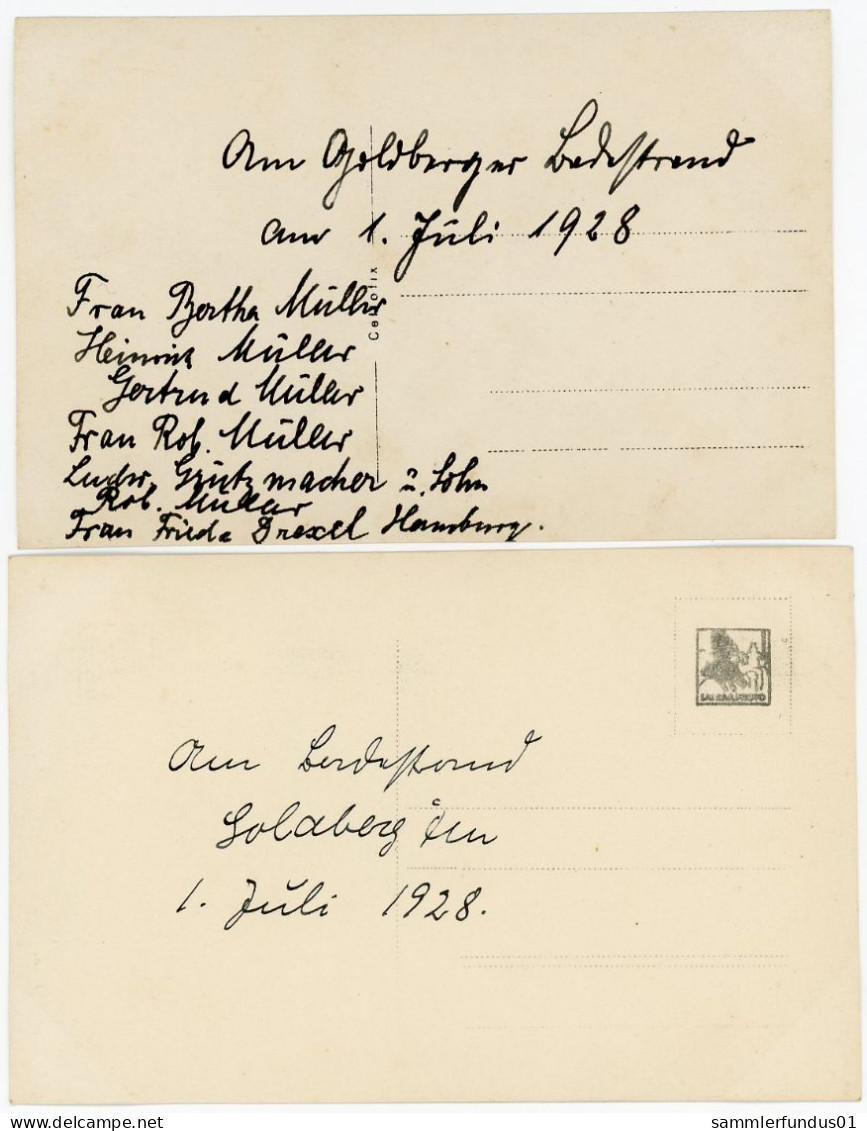 Am Goldberger Badestrand
am 1. Juli 1928
Cellofix
Frau Bertha Müller
Heinrich Müller
Gertrud Müller
Frau Rob. Müller
Ludw. Grützmacher u. Sohn
Rob. Müller
Frau Frieda Drexel Hamburg.
Am Badestrand
Goldberg den
1. Juli 1928.
sammlerfundus01